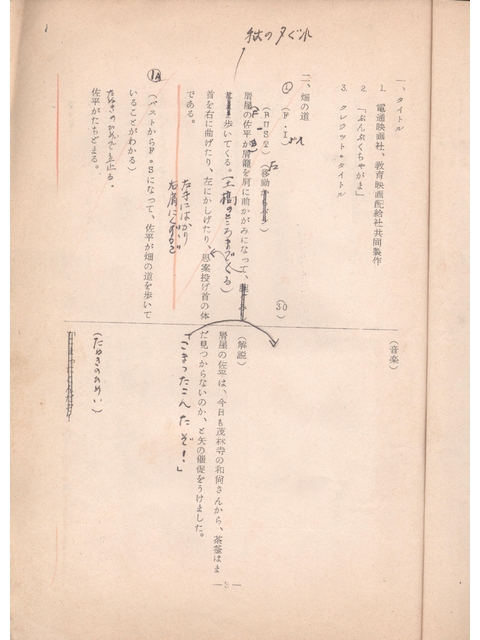 秋の夕ぐれ
一、タイトル
1. 電通映画社、教育映画配給社共同製作
2. 「ぶんぶくちゃがま」
3. クレジット・タイトル
(音楽)
二、畑の道
① (F・I)
(BUST) (移動
屑屋の佐平が屑籠を肩に前かがみになって、
歩いてくる。(土橋のところまでくる)
首を右に曲げたり、左にかしげたり、思案投げ首の体
である。
左手にはかり
右肩にくずかご
50
(解説)
屑屋の佐平は、今日も茂林寺の和尚さんから、茶釜はま
だ見つからないのか、と矢の催促をうけました。
「こまったこんだぞ!」
1A
(バストからF・Sになって、佐平が畑の道を歩いて
いることがわかる)
たぬきのひめいで立止る。
佐平がたちどまる。
(たぬきのひめい)
—3—